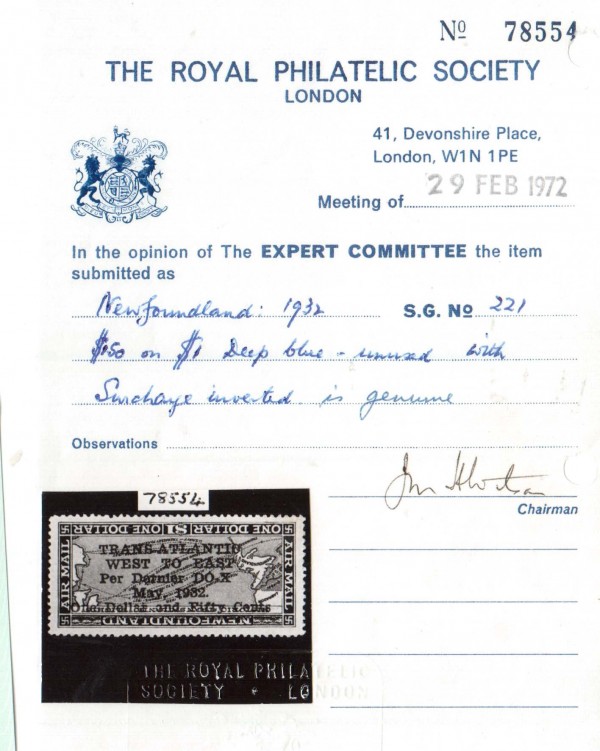 No 78554
THE ROYAL PHILATELIC SOCIETY
LONDON
41, Devonshire Place,
London, W1N 1PE
Meeting of 29 FEB 1972
In the opinion of The EXPERT COMMITTEE the item
submitted as
Newfoundland: 1932 S.G. No 221
$1.50 on $1 Deep blue - unused with
Surcharge inverted is genuine
Observations
Chairman
78554
ONE DOLLAR $1 ONE DOLLAR
AIR MAIL
AIR MAIL
TRANS-ATLANTIC
WEST TO EAST
Per Dornier DO-X
May, 1932.
One Dollar and Fifty Cents
NEWFOUNDLAND
THE ROYAL PHILATELIC
SOCIETY • LONDON